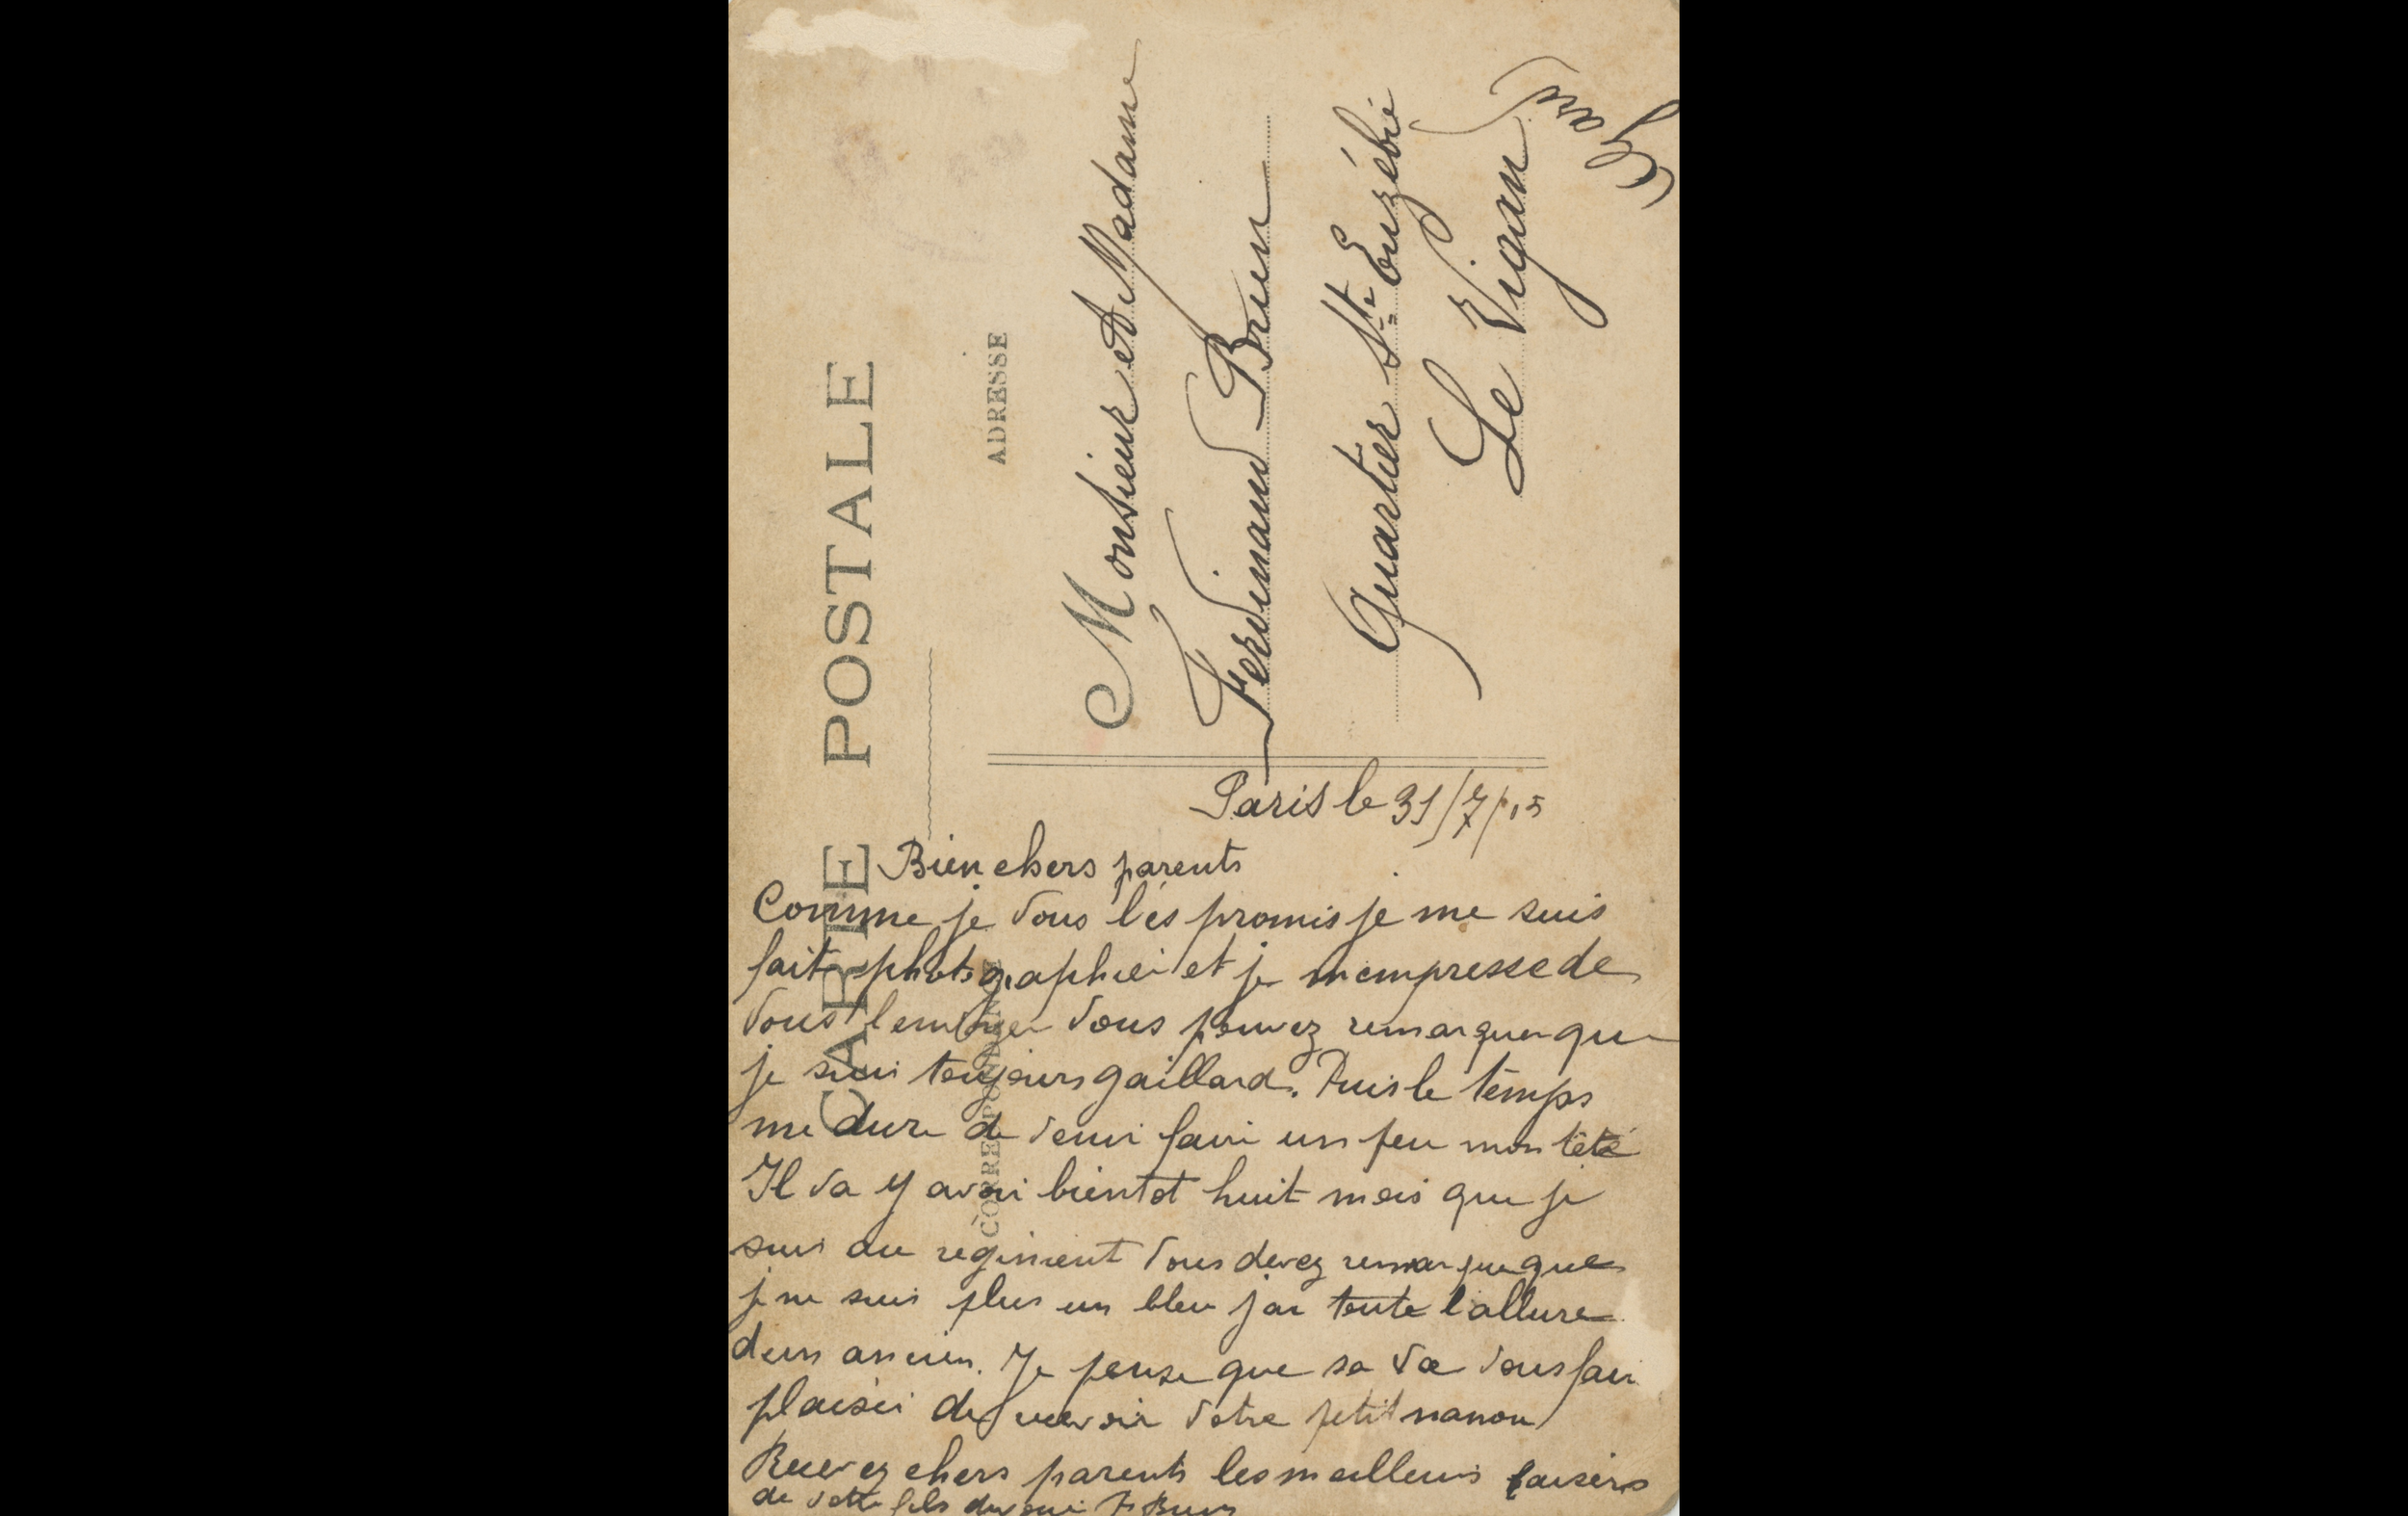 CARTE POSTALE
ADRESSE
Monsieur et Madame
Ferdinand Brun
Quartier Ste Euzébie
Le Vigan
(Gard)
CORRESPONDANCE
Paris le 31/7/15
Bien chers parents
Comme je vous l'es promis je me suis
fait photographier et je mempresse de
vous lenvoyer vous pouvez remarquer que
je suis toujours gaillard. Puis le temps
me dure de venir faire un peu mon tété
Il va y avoir bientot huit mois que je
suis au regiment vous devez remarque que
je ne suis plus un bleu jai toute l'allure
dun ancien. Je pense que sa va vous faire
plaisir de recevoir votre petit nanou
Recevez chers parents les meilleurs baisers
de votre fils F Brun